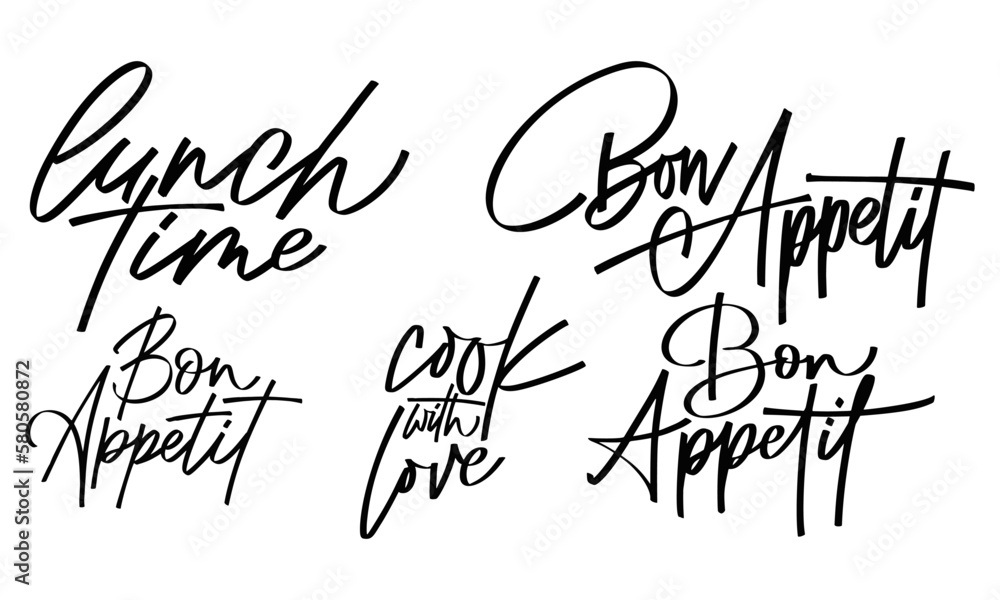 lunch
Time
Bon
Appetit
Bon
Appetit
cook
with
love
Bon
Appetit
Adobe Stock | #580580872